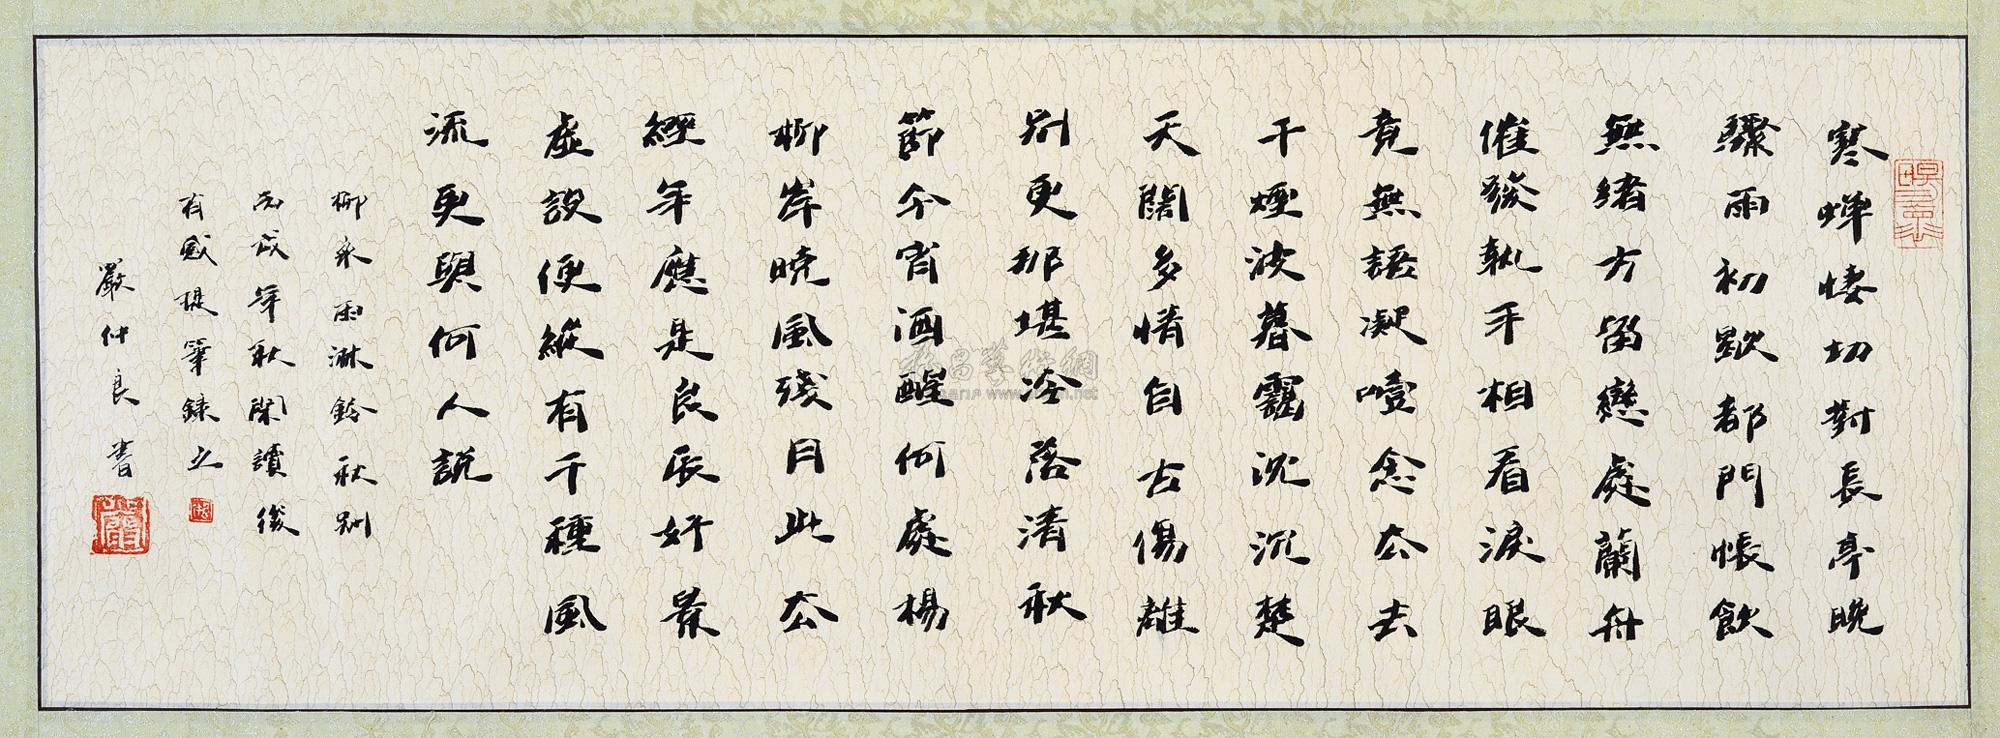 寒蟬悽切對長亭晚
驟雨初歇都門帳飲
無緒方留戀處蘭舟
催發執手相看淚眼
竟無語凝噎念去去
千煙波暮靄沉沉楚
天闊多情自古傷離
別更那堪冷落清秋
節今宵酒醒何處楊
柳岸曉風殘月此去
經年應是良辰好景
虛設便縱有千種風
流更與何人說
柳永雨淋鈴秋別
丙戌年秋閑讀後
有感提筆錄之
嚴仲良書